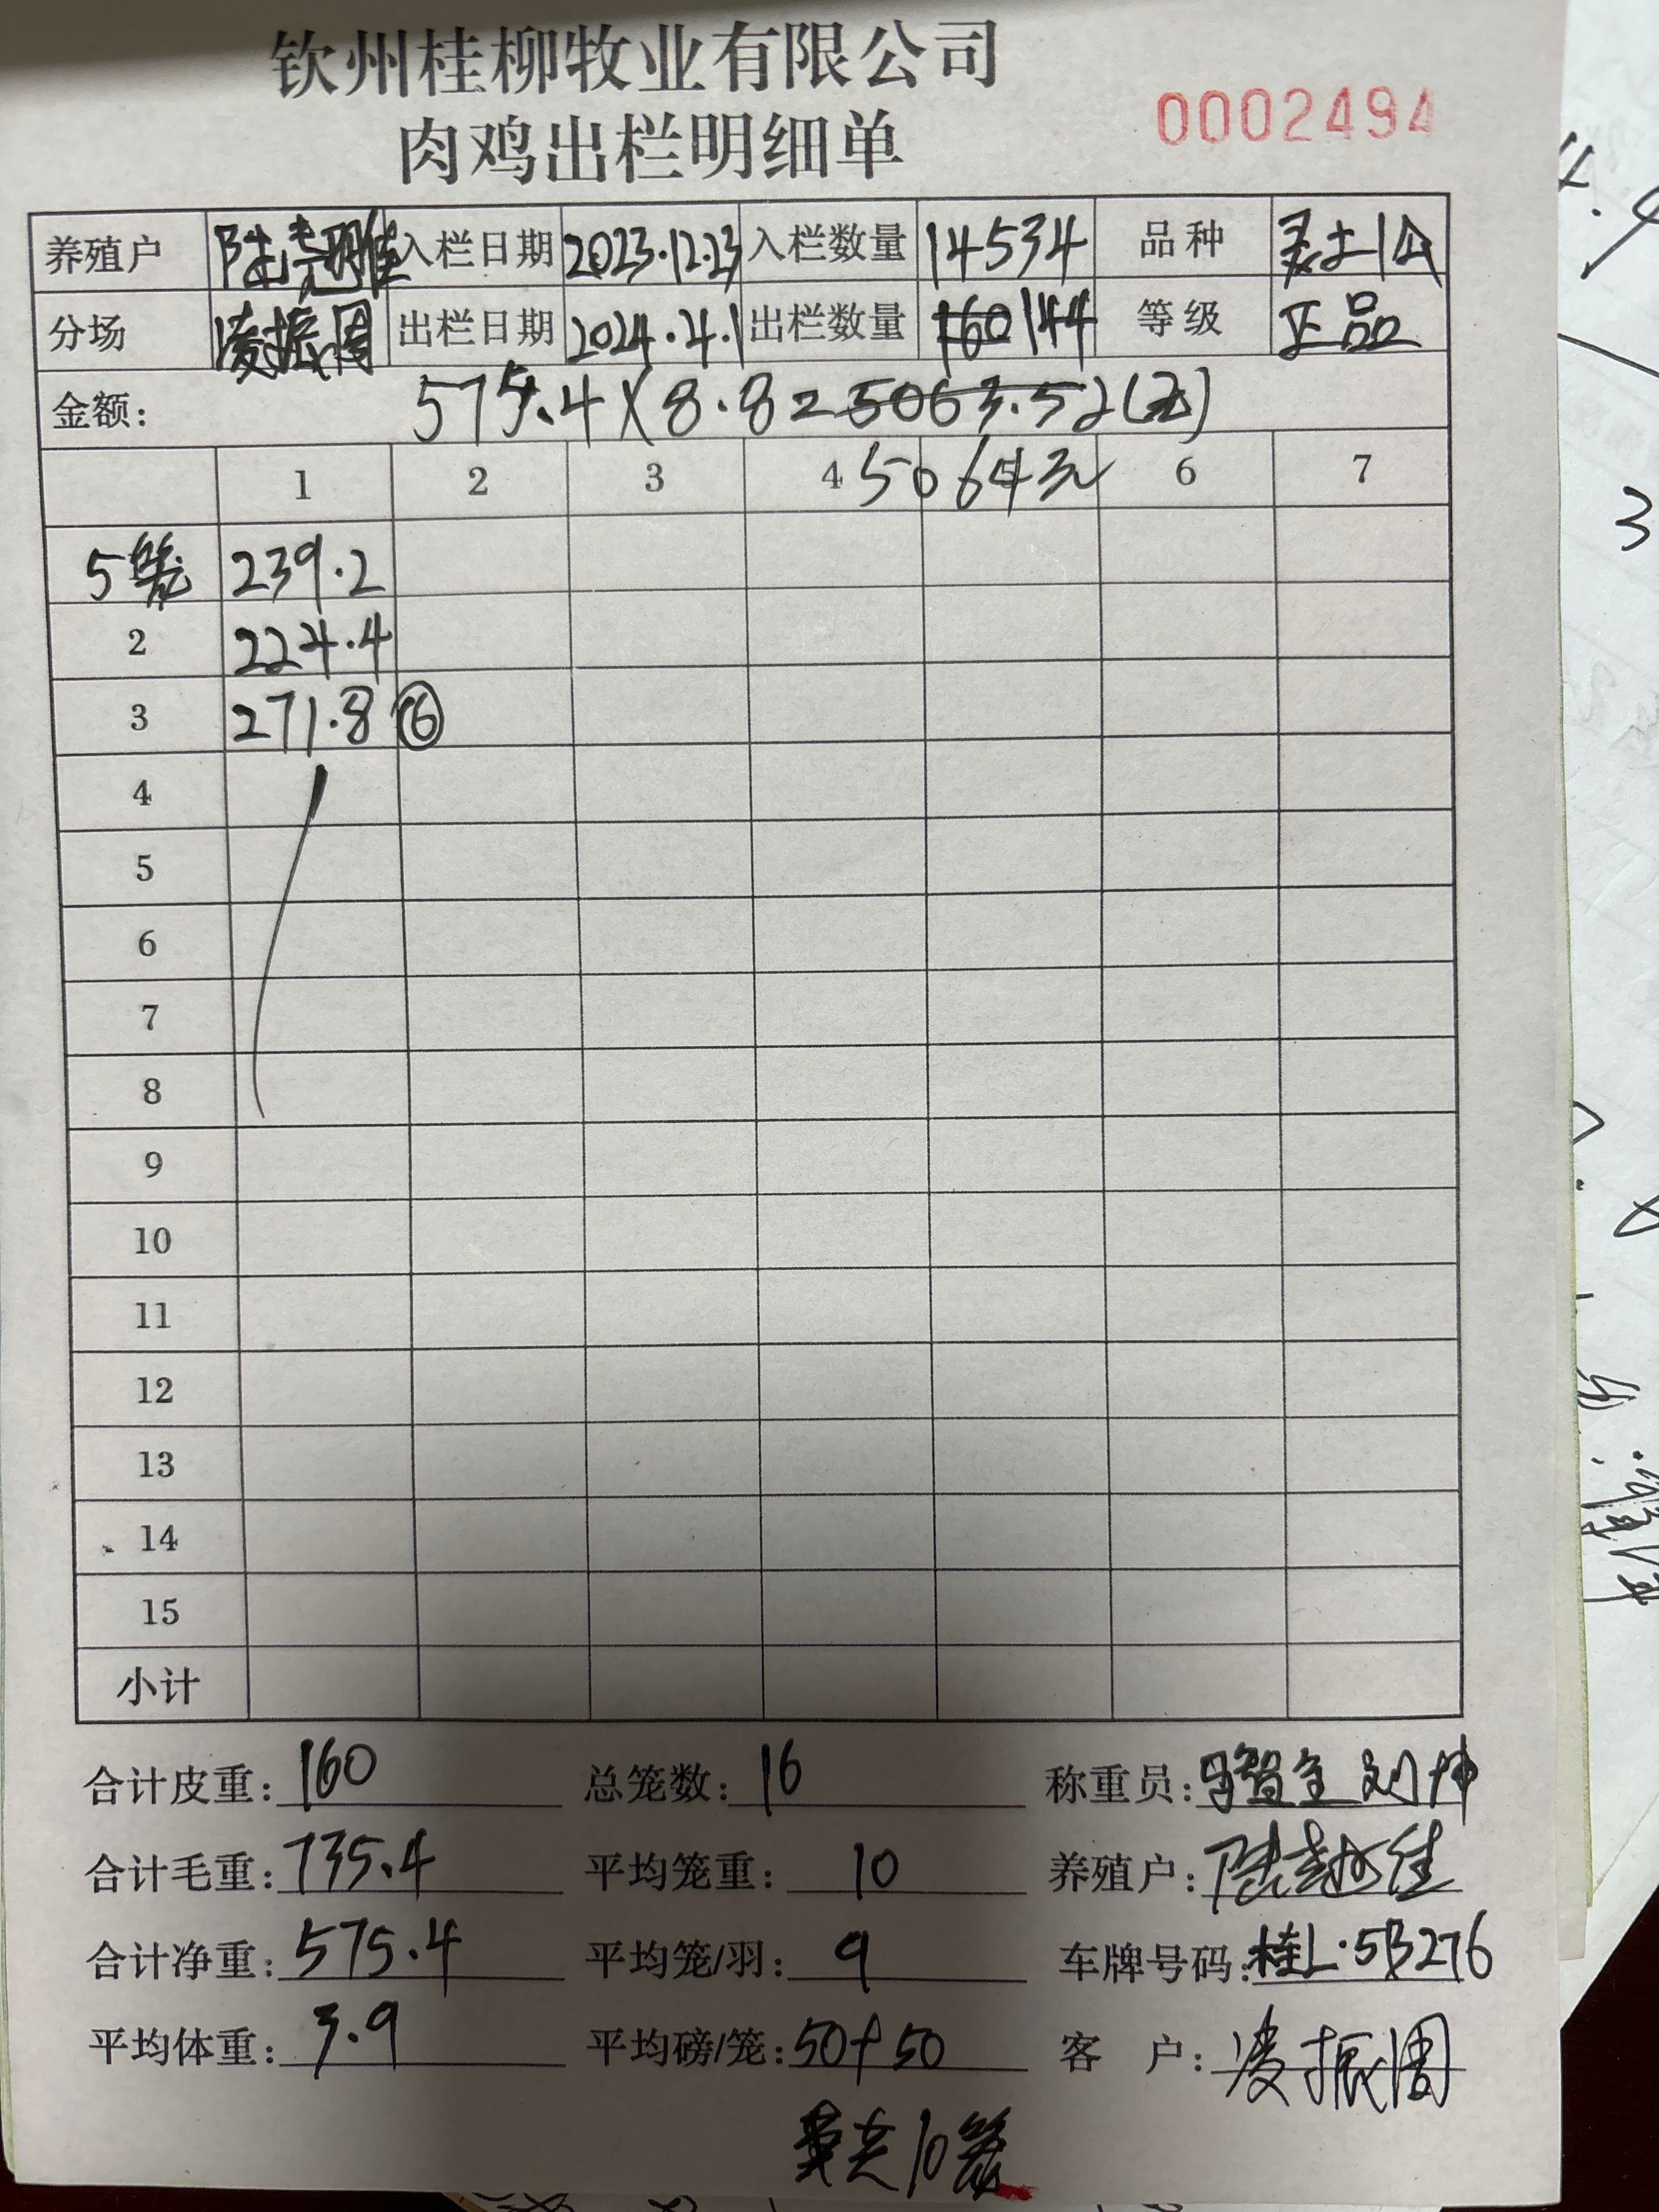 钦州桂柳牧业有限公司
肉鸡出栏明细单
0002494
养殖户 入栏日期 2023.12.23 入栏数量 14534 品种
分场 凌振周 出栏日期 2024.4.1 出栏数量 160 144 等级 正品
金额: 575.4X8.8=5063.52(元)
1 2 3 4 5064元 6 7
5笼 239.2
2 224.4
3 271.8 ⑥
4
5
6
7
8
9
10
11
12
13
14
15
小计
合计皮重: 160 总笼数: 16 称重员: 刘坤
合计毛重: 735.4 平均笼重: 10 养殖户:
合计净重: 575.4 平均笼/羽: 9 车牌号码: 桂L·5B276
平均体重: 3.9 平均磅/笼: 50+50 客 户: 凌振周
10笼